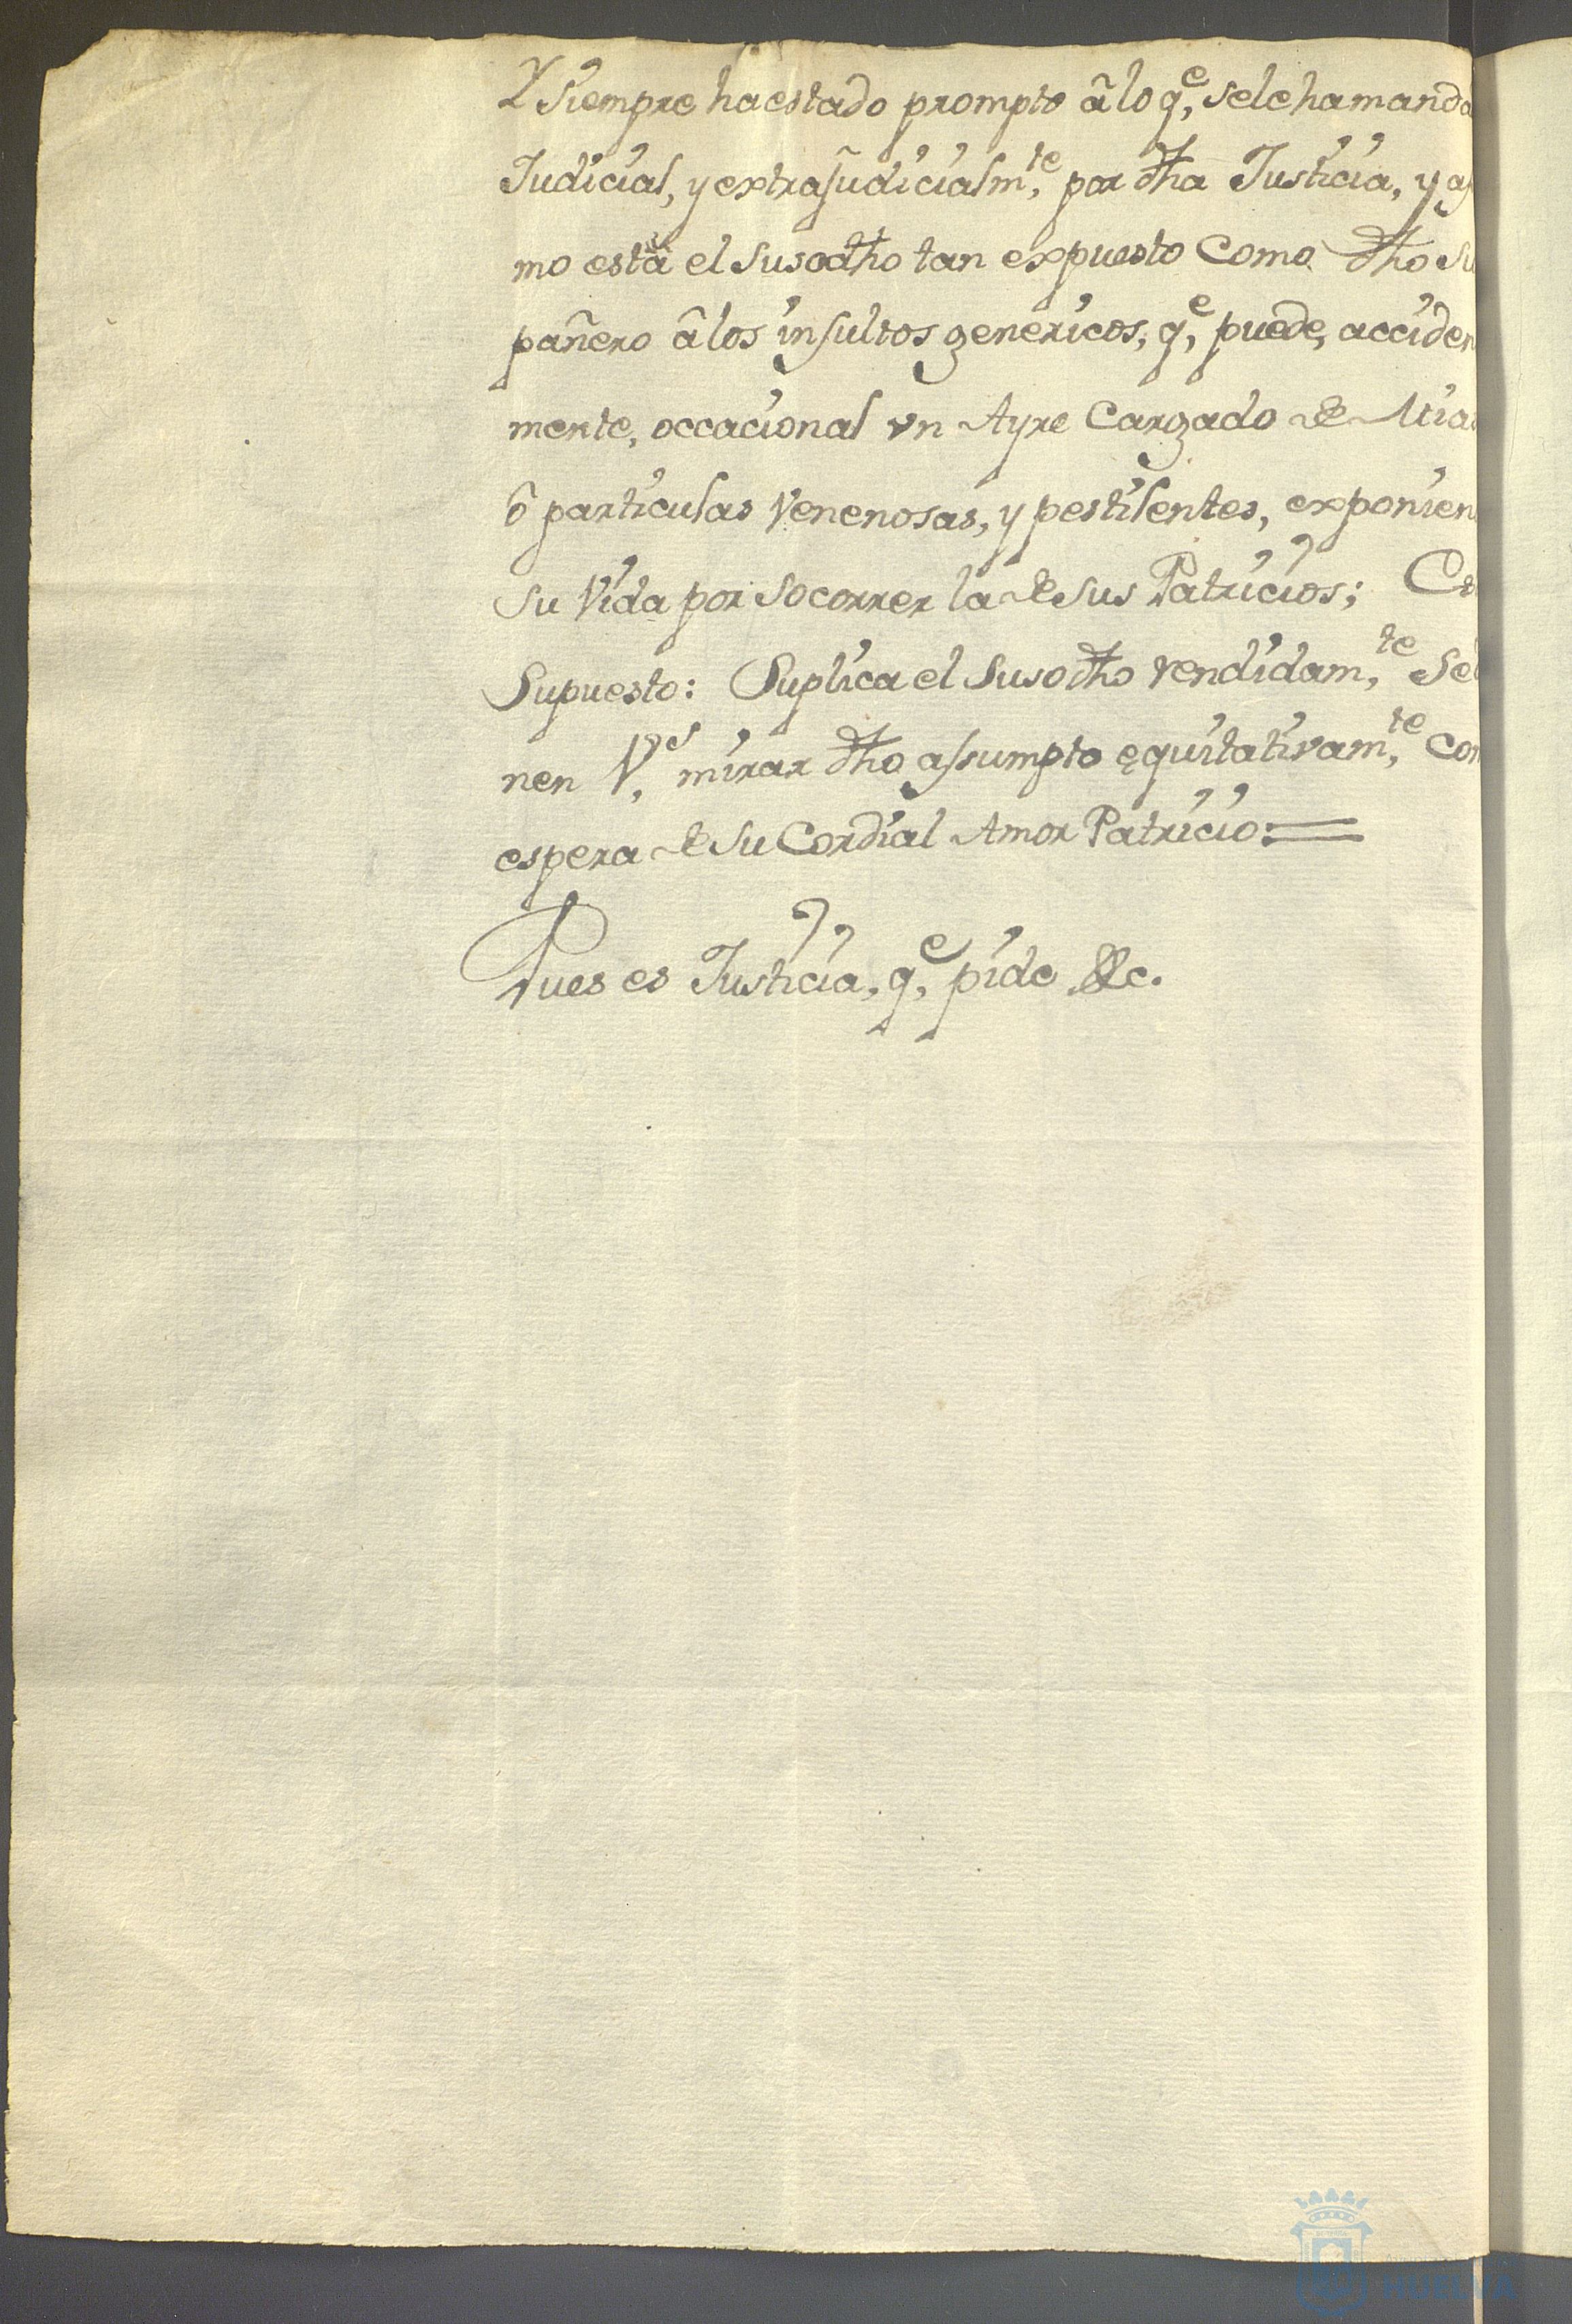 Y Siempre ha estado prompto â lo q.e se le ha manda
Judicial, y extrajudicialm.te por dha Justicia, y as
mo está el Susodho tan expuesto Como dho su
pañero â los insultos genericos, q.e puede, acciden
mente, occacional vn Ayre Cargado de Mia
ô particulas Venenosas, y pestilentes, exponien
su Vida por socorrer la de sus Patricios; Co
Supuesto: Suplica el Susodho rendidam.te se
nen V.s mirar dho assumpto equitativam.te con
espera de su Cordial Amor Patricio:=
Pues es Justicia, q.e pide &c.
HUELVA